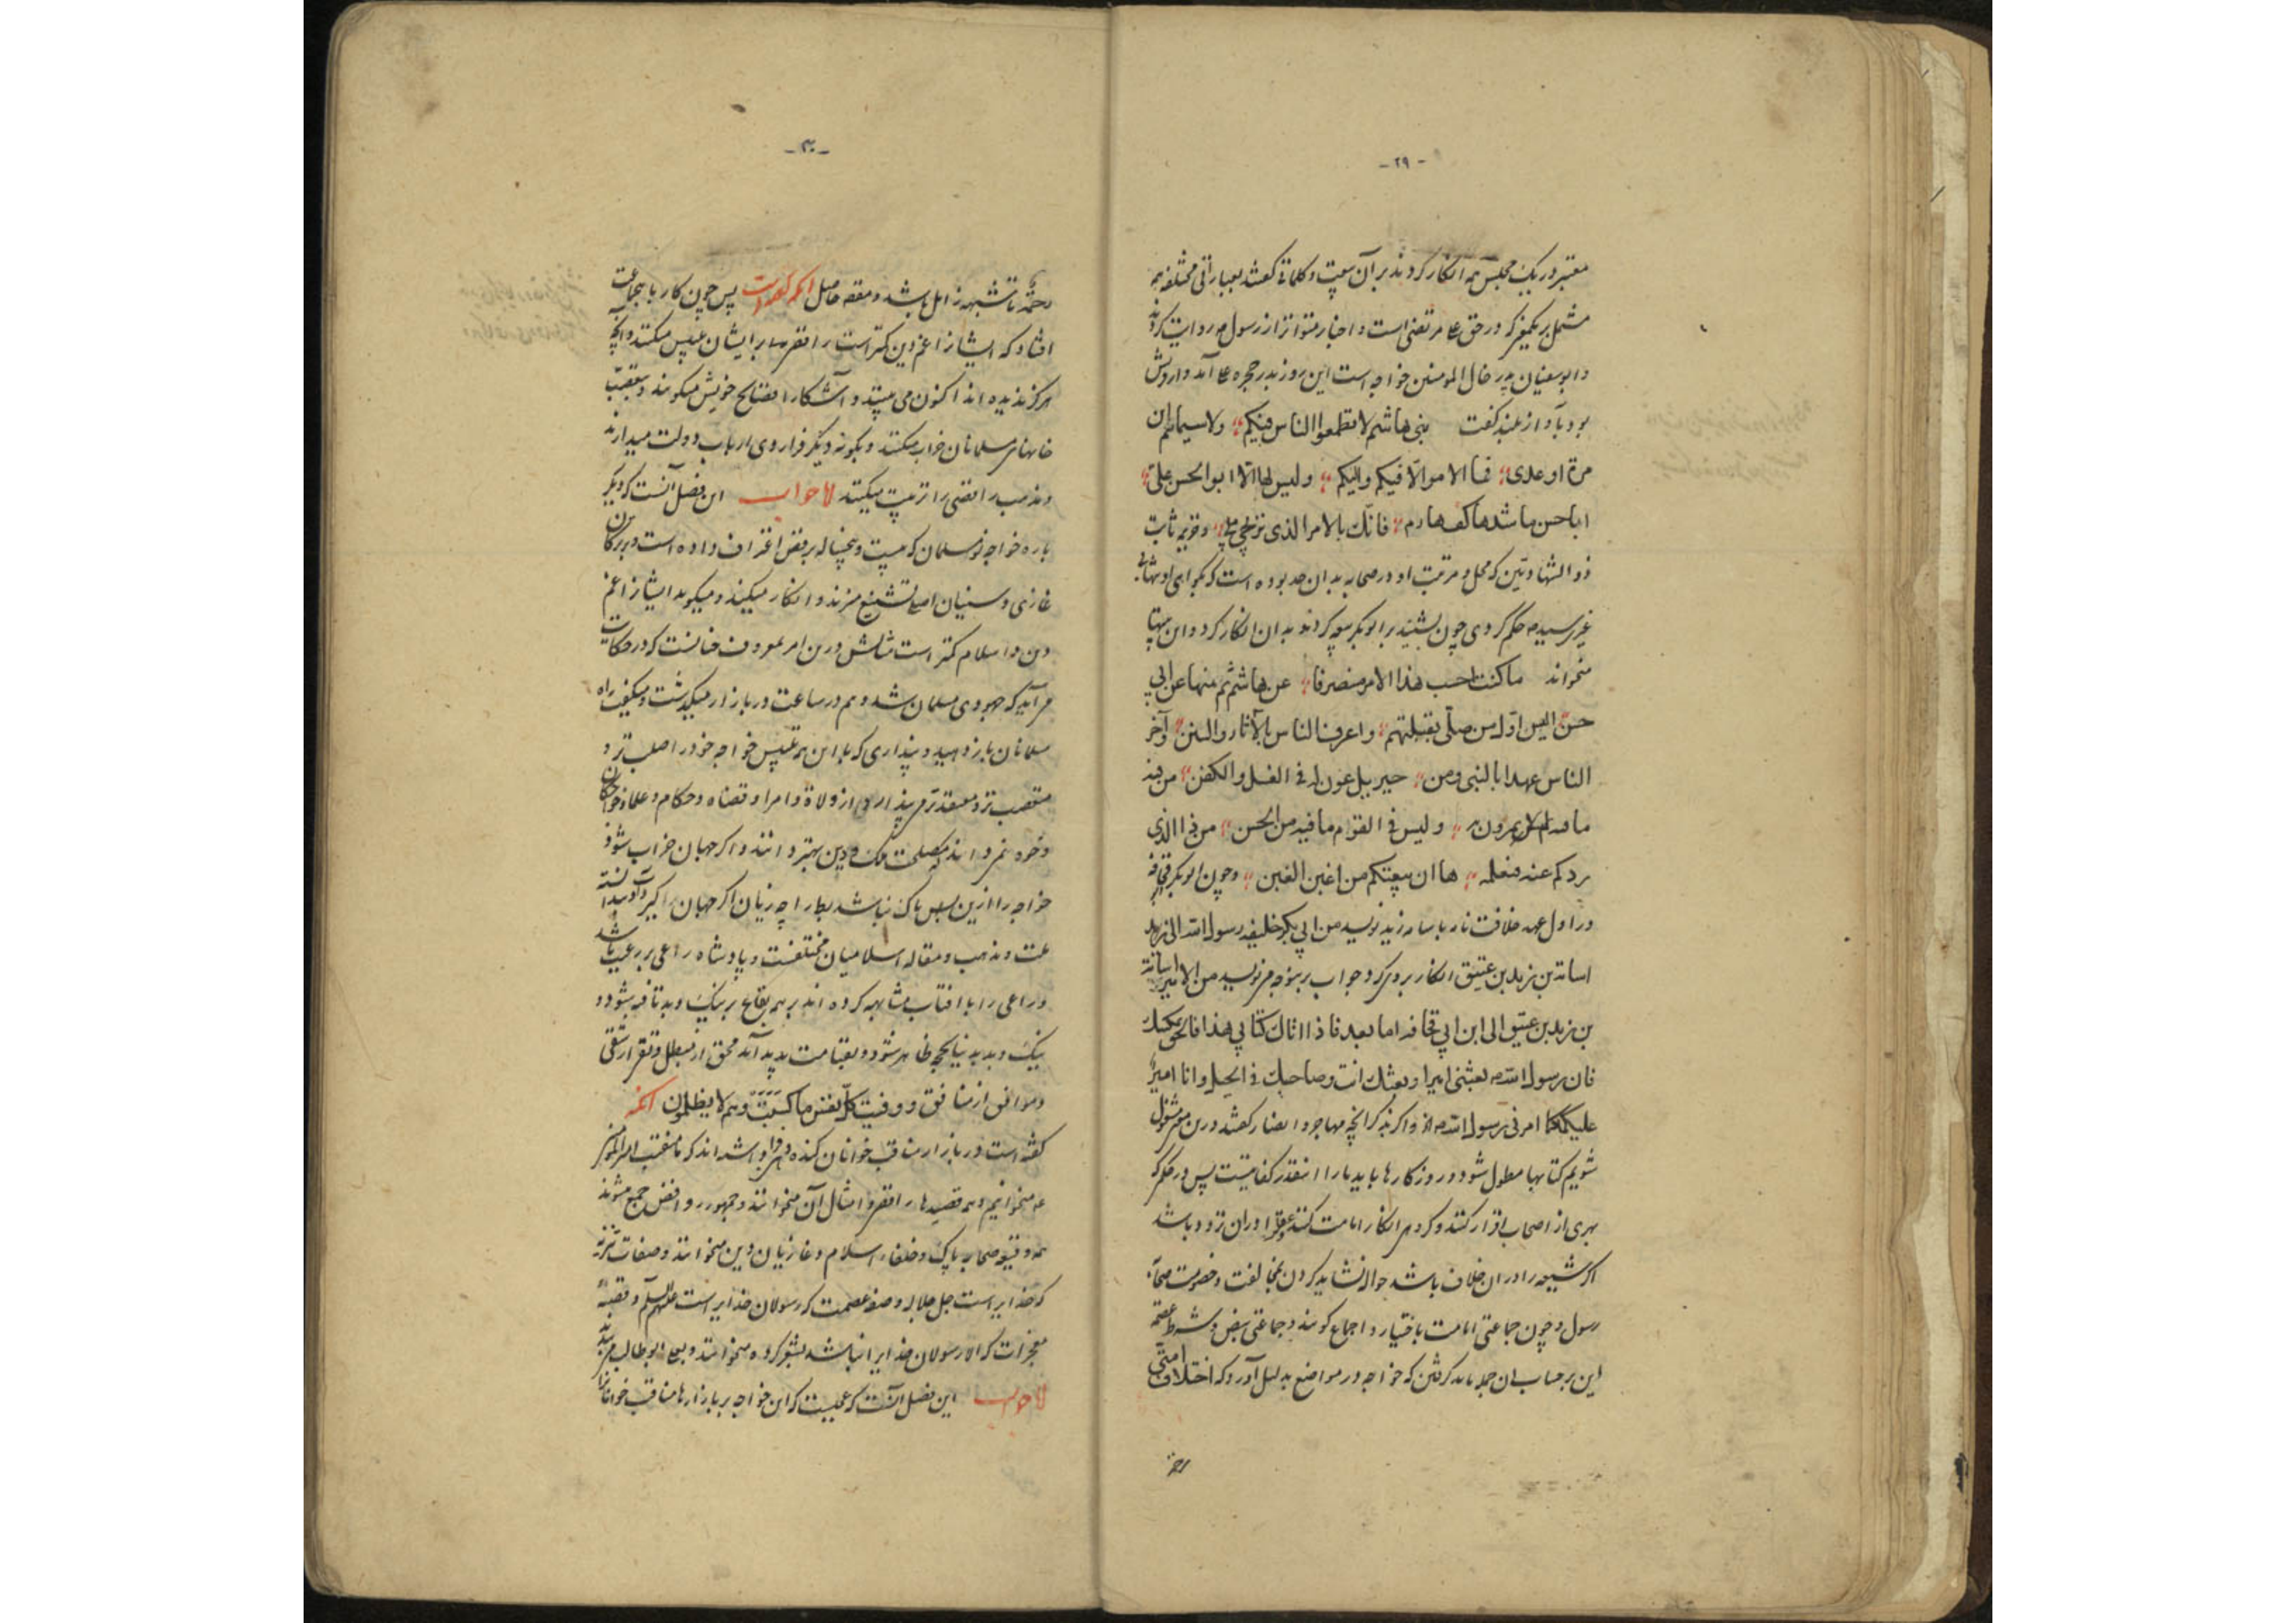 - ۲۹ -
معتبر در یک مجلس همه انکار کردند بر آن بیعت و کلماتی گفتند بعباراتی مختلفه همه
مشتمل بر یکمعنی که در حق علی مرتضی است و اخبار متواتر از رسول ص روایت کردند
و ابوسفیان پدر خال المومنین خواجه است این روز بدر حجره علی آمد و
بود بآواز بلند گفت بنی هاشم لا تطمعوا الناس فیکم ؛ ولا سیما تیم ان
مرة او عدی ؛ فما الامر الّا فیکم و الیکم ؛ و لیس لها الّا ابو الحسن علیّ ؛
ابا حسن فاشدد بها کف حازم ؛ فانّک بالامر الذی ؛ و خزیمه ثابت
ذو الشهادتین که محل و مرتبت او در صحابه بدان حد بوده است که بگواهی او تنهابی
غیری سید ص حکم کردی چون بشنید بر ابوبکر بیعه کردند بدان انکار کرد و این بیتها
میخواند ما کنت احسب هذا الامر منصرفا ؛ عن هاشم ثم منها عن ابی
حسن الیس اوّل من صلّی بقبلتهم ؛ و اعرف الناس بالآثار والسنن ؛ و آخر
الناس عهدا بالنبی و من ؛ جبریل عون له فی الغسل و الکفن ؛ من فیه
ما فیهم لا یمترون به ؛ و لیس فی القوم ما فیه من الحسن ؛ من ذا الذی
ردکم عنه فنعلمه ؛ ها ان بیعتکم من اغبن الغبن ؛ و چون ابوبکر قحافه
در اول عهد خلافت نامه باسامه زید نویسد من ابی بکر خلیفه رسول الله الی
اسامة بن زید بن عتیق انکار بروی کرد و جواب برینوجه می نویسد من الامیر اسامة
بن زید بن عتیق الی ابن ابی قحافه اما بعد فاذا اتاک کتابی هذا فالحق بمکانک
فان رسول الله ص بعثنی امیرا و بعثک انت و صاحبک فی الخیل و انا امیرٌ
علیکما امرنی رسول الله ص و اگر بذکر آنچه مهاجر و انصار گفتند درین مشغول
شویم کتابها مطول شود و روزگارها باید ما را اینقدر کفایتست پس در حکمی که
بهری از اصحاب اقرار کنند و گروهی انکار امامت کنند عقلا را در آن تردد باشد
اگر شیعه را در آن خلاف باشد حواله نشاید کردن بمخالفت و خصومت صحابه
رسول و چون جماعتی امامت باختیار و اجماع گویند و جماعتی بنص و شرط عصمة
این بر حساب آن جمله باید گرفتن که خواجه در مواضع بدلیل آورد که اختلاف امتی
رحمة
- ۳۰ -
رحمةٌ تا شبهه زائل باشد و مقصود حاصل آنکه گفته است پس چون کار با جماعتی
افتاد که ایشانرا غم دین کمتر است رافضی را بر ایشان تلبیس میکنند و آنچه
هرگز ندیده اند اکنون می بینند و آشکارا فضایح خویش میگویند و بتعصّب
خانهای مسلمانان خراب میکنند و بگونه دیگر فرا روی ارباب دولت میدارند
و مذهب رافضی را تربیت میکنند اما جواب این فصل آنست که دیگر
باره خواجه نو مسلمان که بیست و پنجساله برفض اعتراف داده است و بر ترکان
غازی و سنیان اصلی تشنیع میزند و انکار میکند و میگوید ایشانرا غم
دین و اسلام کمتر است مثالش درین امر معروف چنانست که در حکایت
می آید که جهودی مسلمان شد و هم در ساعت در بازار میگذشت و میگفت راه
مسلمانان باز دهید و پنداری که با این همه تلبیس خواجه خود را صلب تر و
متعصب تر و معتقدتر می پندارد از ولاة و امرا و قضاه و حکام و علما و خواجگان
و خود نمی داند که مصلحت ملک و دین بهتر دانند و اگر جهان خراب شود
خواجه را ازین بس باک نباشد بط را چه زیان اگر جهان گیرد آب دانسته
علت و مذهب و مقاله اسلامیان مختلفست و پادشاه راعی بر رعیت باشد
و راعی را با آفتاب مشابهه کرده اند بر همه بقاع بر نیک و بد تافته شود و
نیک و بد بدنیا بحجة ظاهر شود و بقیامت پدید آید محق از مبطل و تقی از شقی
و موافق از منافق و وفیت کلّ نفس ما کسبت و هم لا یظلمون آنکه
گفته است و در بازار مناقب خوانان گنده دهن فرا داشته اند که ما منقبت امیر المومنین
ع میخوانیم و همه قصیدهای رافضی و امثال آن میخوانند و جمهور روافض جمع میشوند
همه وقیعه صحابه پاک و خلفاء اسلام و غازیان دین میخوانند و صفات تنزیه
که خدایراست جل جلاله و صفه عصمت که رسولان خدایراست علیهم السلم و قصه
معجزات که الا رسولان خدایرا نباشد بشعر کرده میخوانند و بعلی ابوطالب می بندند
اما جواب این فصل آنست که عجبست که این خواجه بر بازارها مناقب خوانانرا